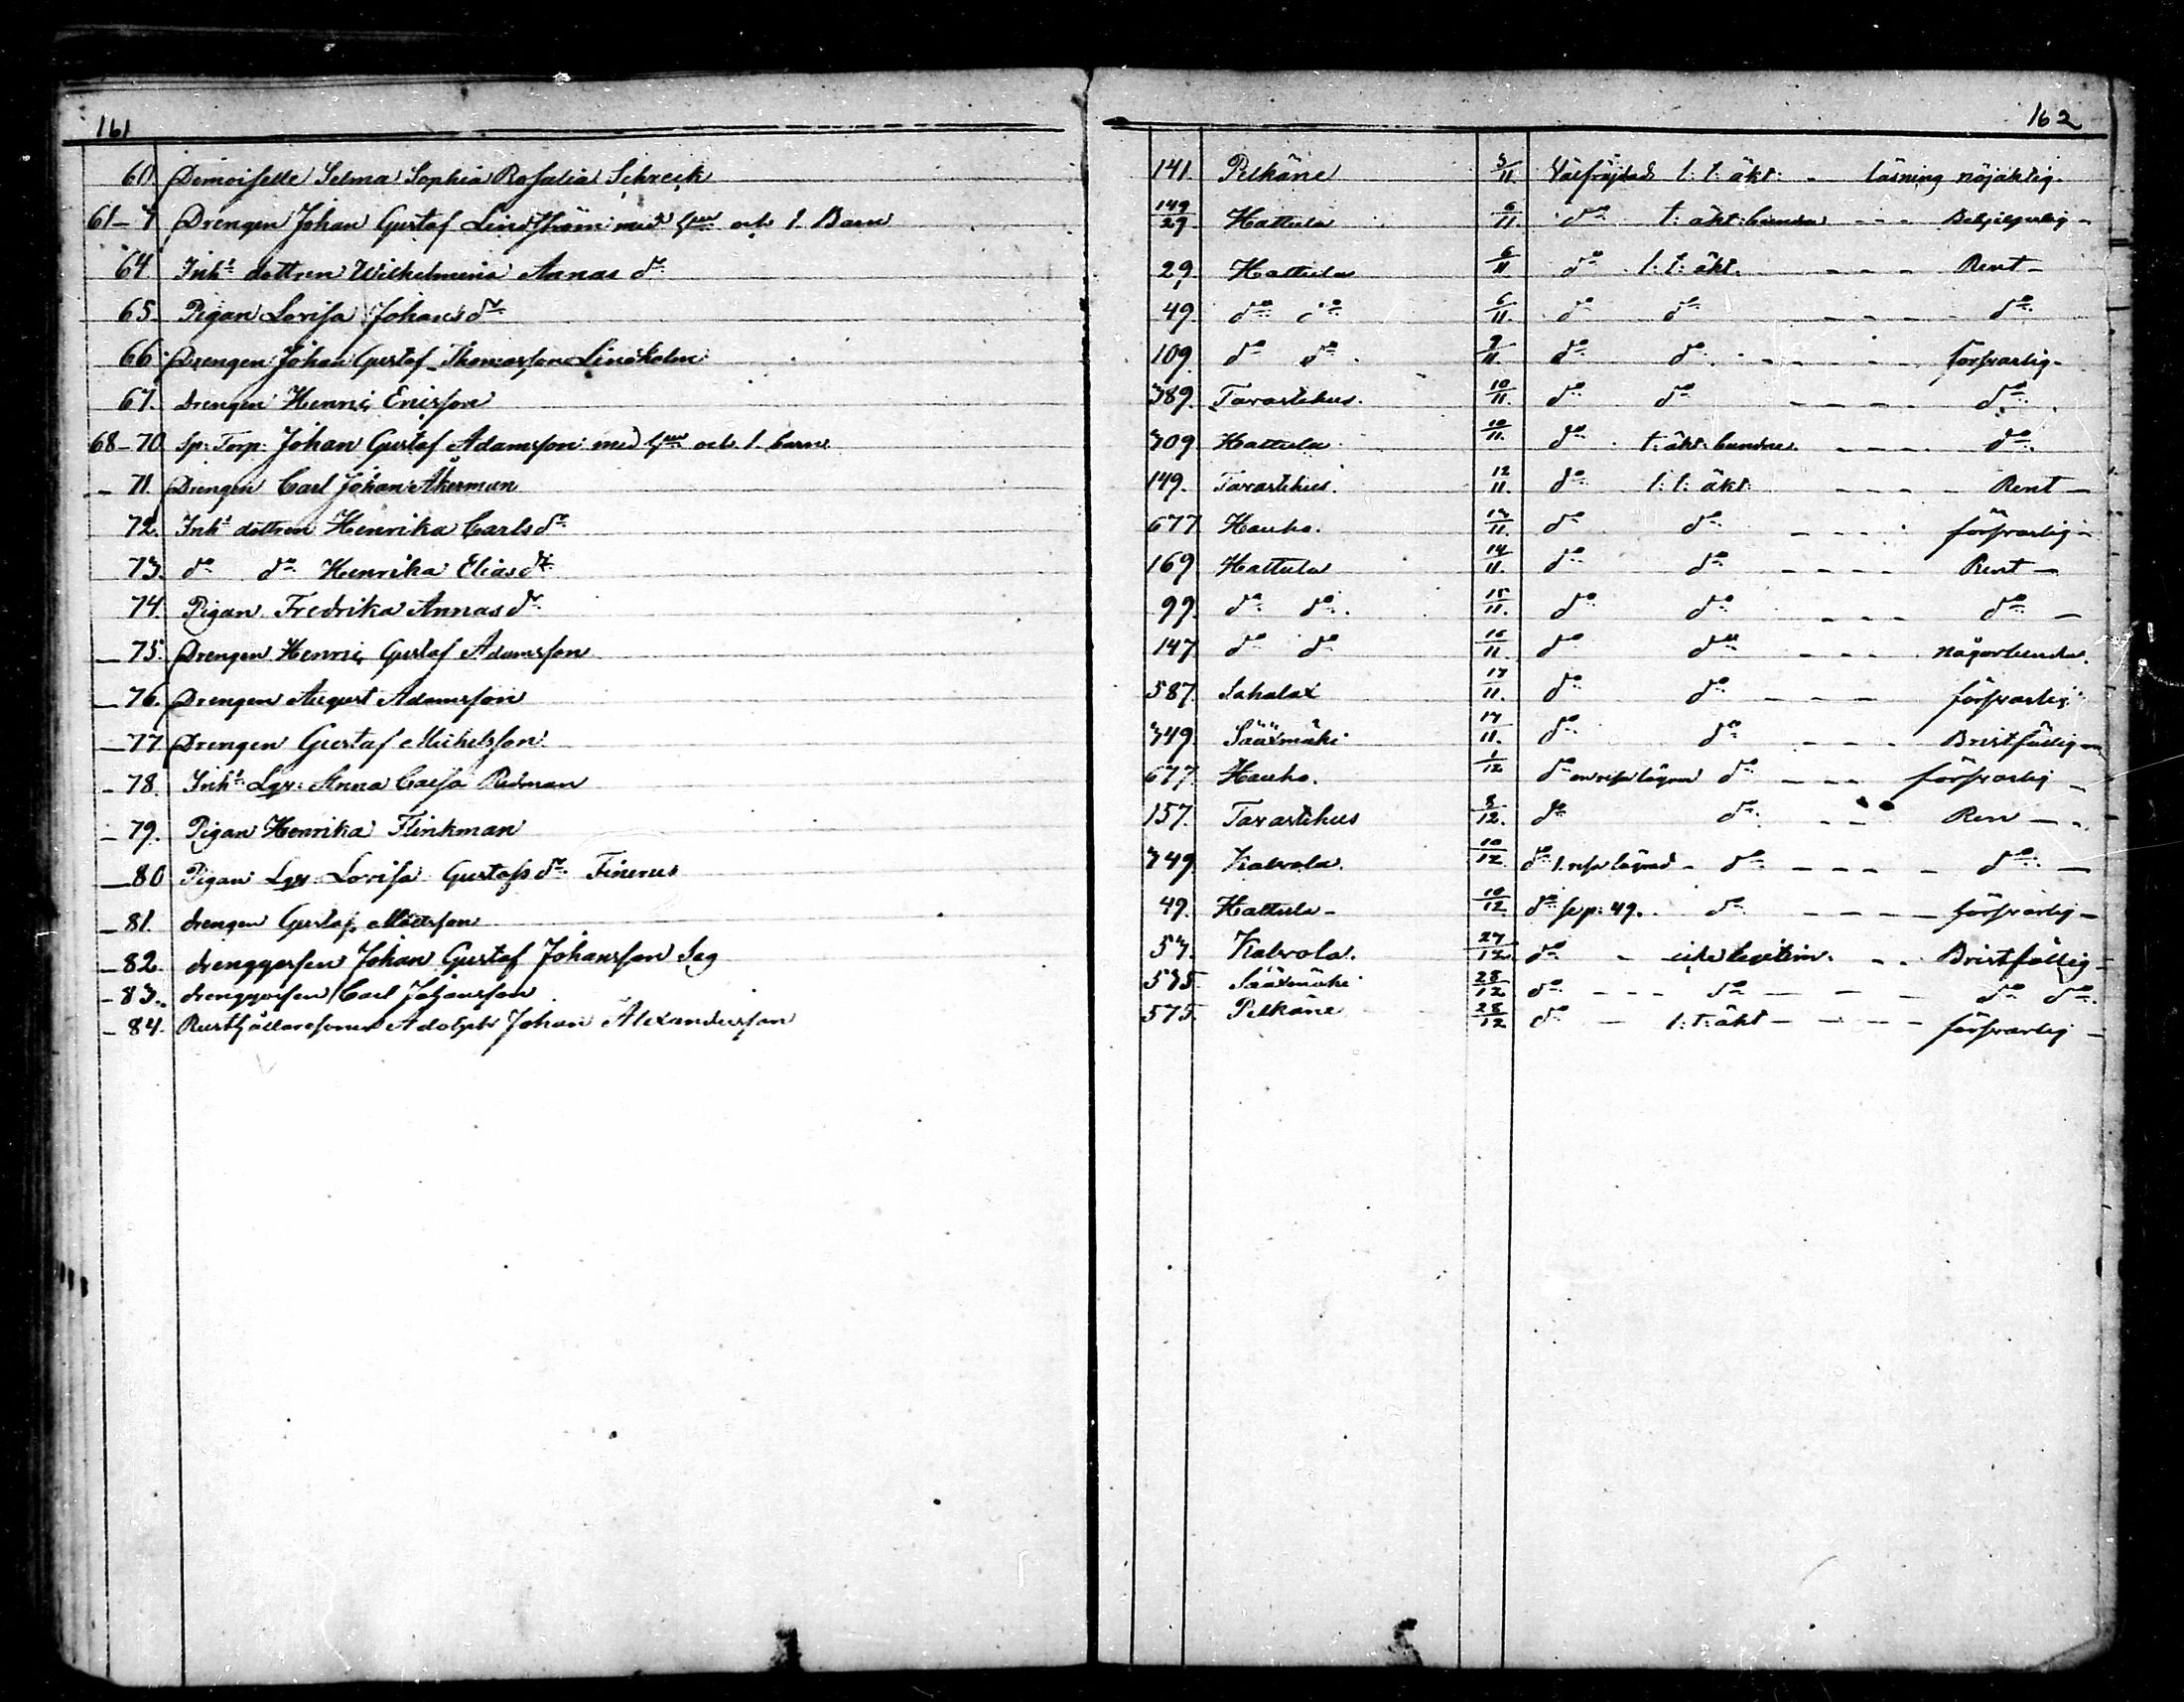 161
60. Demoiselle Selma Sophia Rosalia Schreck
61-3 Drengen Johan Gustaf Lindström med hu och 1. Barn
64 Inhs dottren Wilhelmina Annas dr
65. Pigan Lovisa Johans dr
66 Drengen Johan Gustaf Thomasson Lindholm
67. Drengen Henric Ericsson
68-70 Sp: Torp. Johan Gustaf Adamsson med hu och 1. barn
- 71. Drengen Carl Johan Åkerman
72. Inhs dottren Henrika Carls dr
73. do do Henrika Elias dr
74. Pigan Fredrika Annas dr
- 75. Drengen Henric Gustaf Adamsson
- 76. Drengen August Adamsson
- 77 Drengen Gustaf Michelsson
- 78. Inhs Lgr: Anna Caisa Redman
- 79. Pigan Henrika Flinkman
- 80 Pigan Lgr. Lovisa Gustafs dr Finerus
- 81. drengen Gustaf Mattsson
- 82. drenggossen Johan Gustaf Johansson Seg
- 83. drenggossen Carl Johansson
- 84. Rusthållaresonen Adolph Johan Alexandersson
162
141. Pelkäne 3/11 Välfräjdad l: t: äkt: - läsning nöjaktig.
149/29 Hattula 6/11. do t: äkt: bundne - - -
29. Hattula 6/11 do l: t: äkt. - - - Rent -
49. do do 6/11. do do - - - - do
109. do do. 7/11. do do - - - - försvarlig.
389. Tavastehus. 10/11. do do - - - - do
309. Hattula 10/11. do t: äkt: bundne. - - - do
149. Tavastehus. 12/11. do l: t: äkt: - - - - Rent -
677 Hauho. 13/11. do do - - - försvarlig -
169. Hattula 14/11. do do - - - - Rent -
99. do do. 15/11. do do - - - do -
147. do do 16/11. do do - - - någorlunda.
587. Sahalax 17/11. do do - - - - försvarlig
349. Sääxmäki 17/11. do do - - - Bristfällig
677. Hauho. 1/12 do en resa lägrad do - - - försvarlig -
157. Tavastehus 8/12. do do - - Ren - -
349. Kalvola. 10/12. do 1. resa lägrad - do - - - - do -
49. Hattula - 10/12 do se p: 49. do - - - - försvarlig -
53. Kalvola. 27/12. do - icke legitim. - - Bristfällig -
535. Sääxmäki 28/12 do - - - do - - - do do.
575. Pelkäne 28/12 do - l: t: äkt - - - - försvarlig -